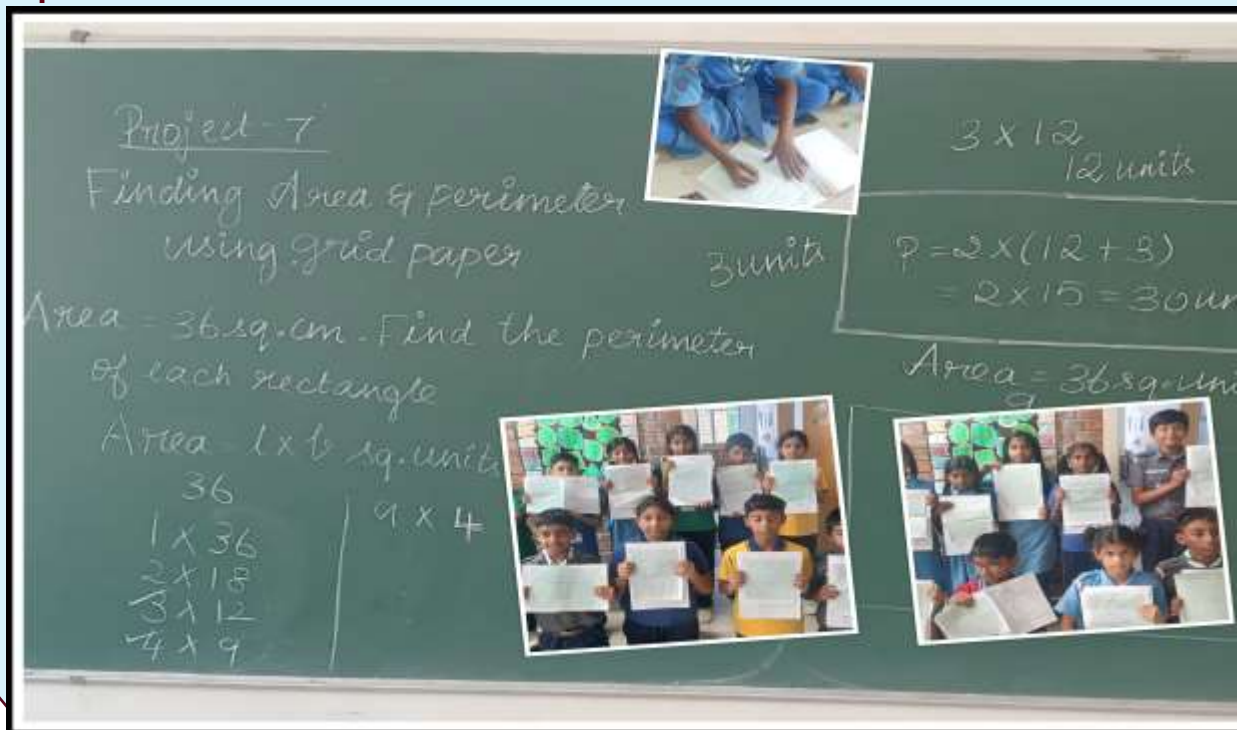 Project - 7
Finding Area & perimeter
using grid paper
Area = 36 sq.cm. Find the perimeter
of each rectangle
Area l x b sq.units
36
1 x 36
2 x 18
3 x 12
4 x 9
9 x 4
3 x 12
12 units
3 units
P = 2 x (12 + 3)
= 2 x 15 = 30 un
Area = 36 sq. uni
9